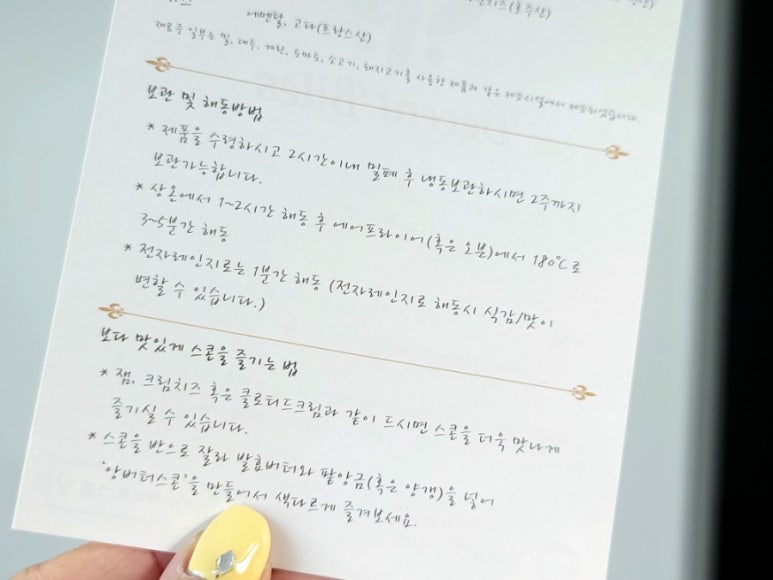 치즈(호주산)
에멘탈, 고다(프랑스산)
재료중 일부는 밀, 대두, 계란, 토마토, 소고기, 돼지고기를 사용한 제품과 같은 제조시설에서 제조되었습니다.
보관 및 해동방법
* 제품을 수령하시고 2시간이내 밀폐 후 냉동보관하시면 2주까지
보관가능합니다.
* 상온에서 1~2시간 해동 후 에어프라이어(혹은 오븐)에서 180℃로
3~5분간 해동
* 전자레인지로는 1분간 해동 (전자레인지로 해동시 식감/맛이
변할 수 있습니다.)
보다 맛있게 스콘을 즐기는 법
* 잼, 크림치즈 혹은 클로티드크림과 같이 드시면 스콘을 더욱 맛나게
즐기실 수 있습니다.
* 스콘을 반으로 잘라 발효버터와 팥앙금(혹은 양갱)을 넣어
'앙버터스콘'을 만들어서 색다르게 즐겨보세요.